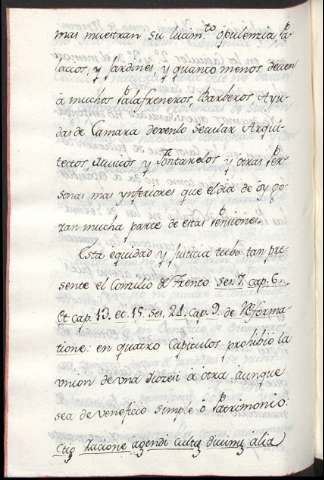 mas muestran su lucim.to opulencia Pa
lacios, y Jardines, y quanto menos deven
à muchos Palafreneros, Barberos, Ayu-
das de Camara devenlo secular Arqui-
tectos, Musicos y Fontaneros y otras Per-
sonas mas ynferiores que el dia de oy go-
zan mucha parte de estas Pensiones.
Esta equidad y Justicia tubo tan pre-
sente el Concilio de Trento ses. 7. cap. 6.
et cap. 13. et. 15. ses. 24. cap. 9. de Reforma-
tione: en quatro Capitulos prohibio la
union de una Diocesi à otra aunque
sea de veneficio simple ò Patrimonio